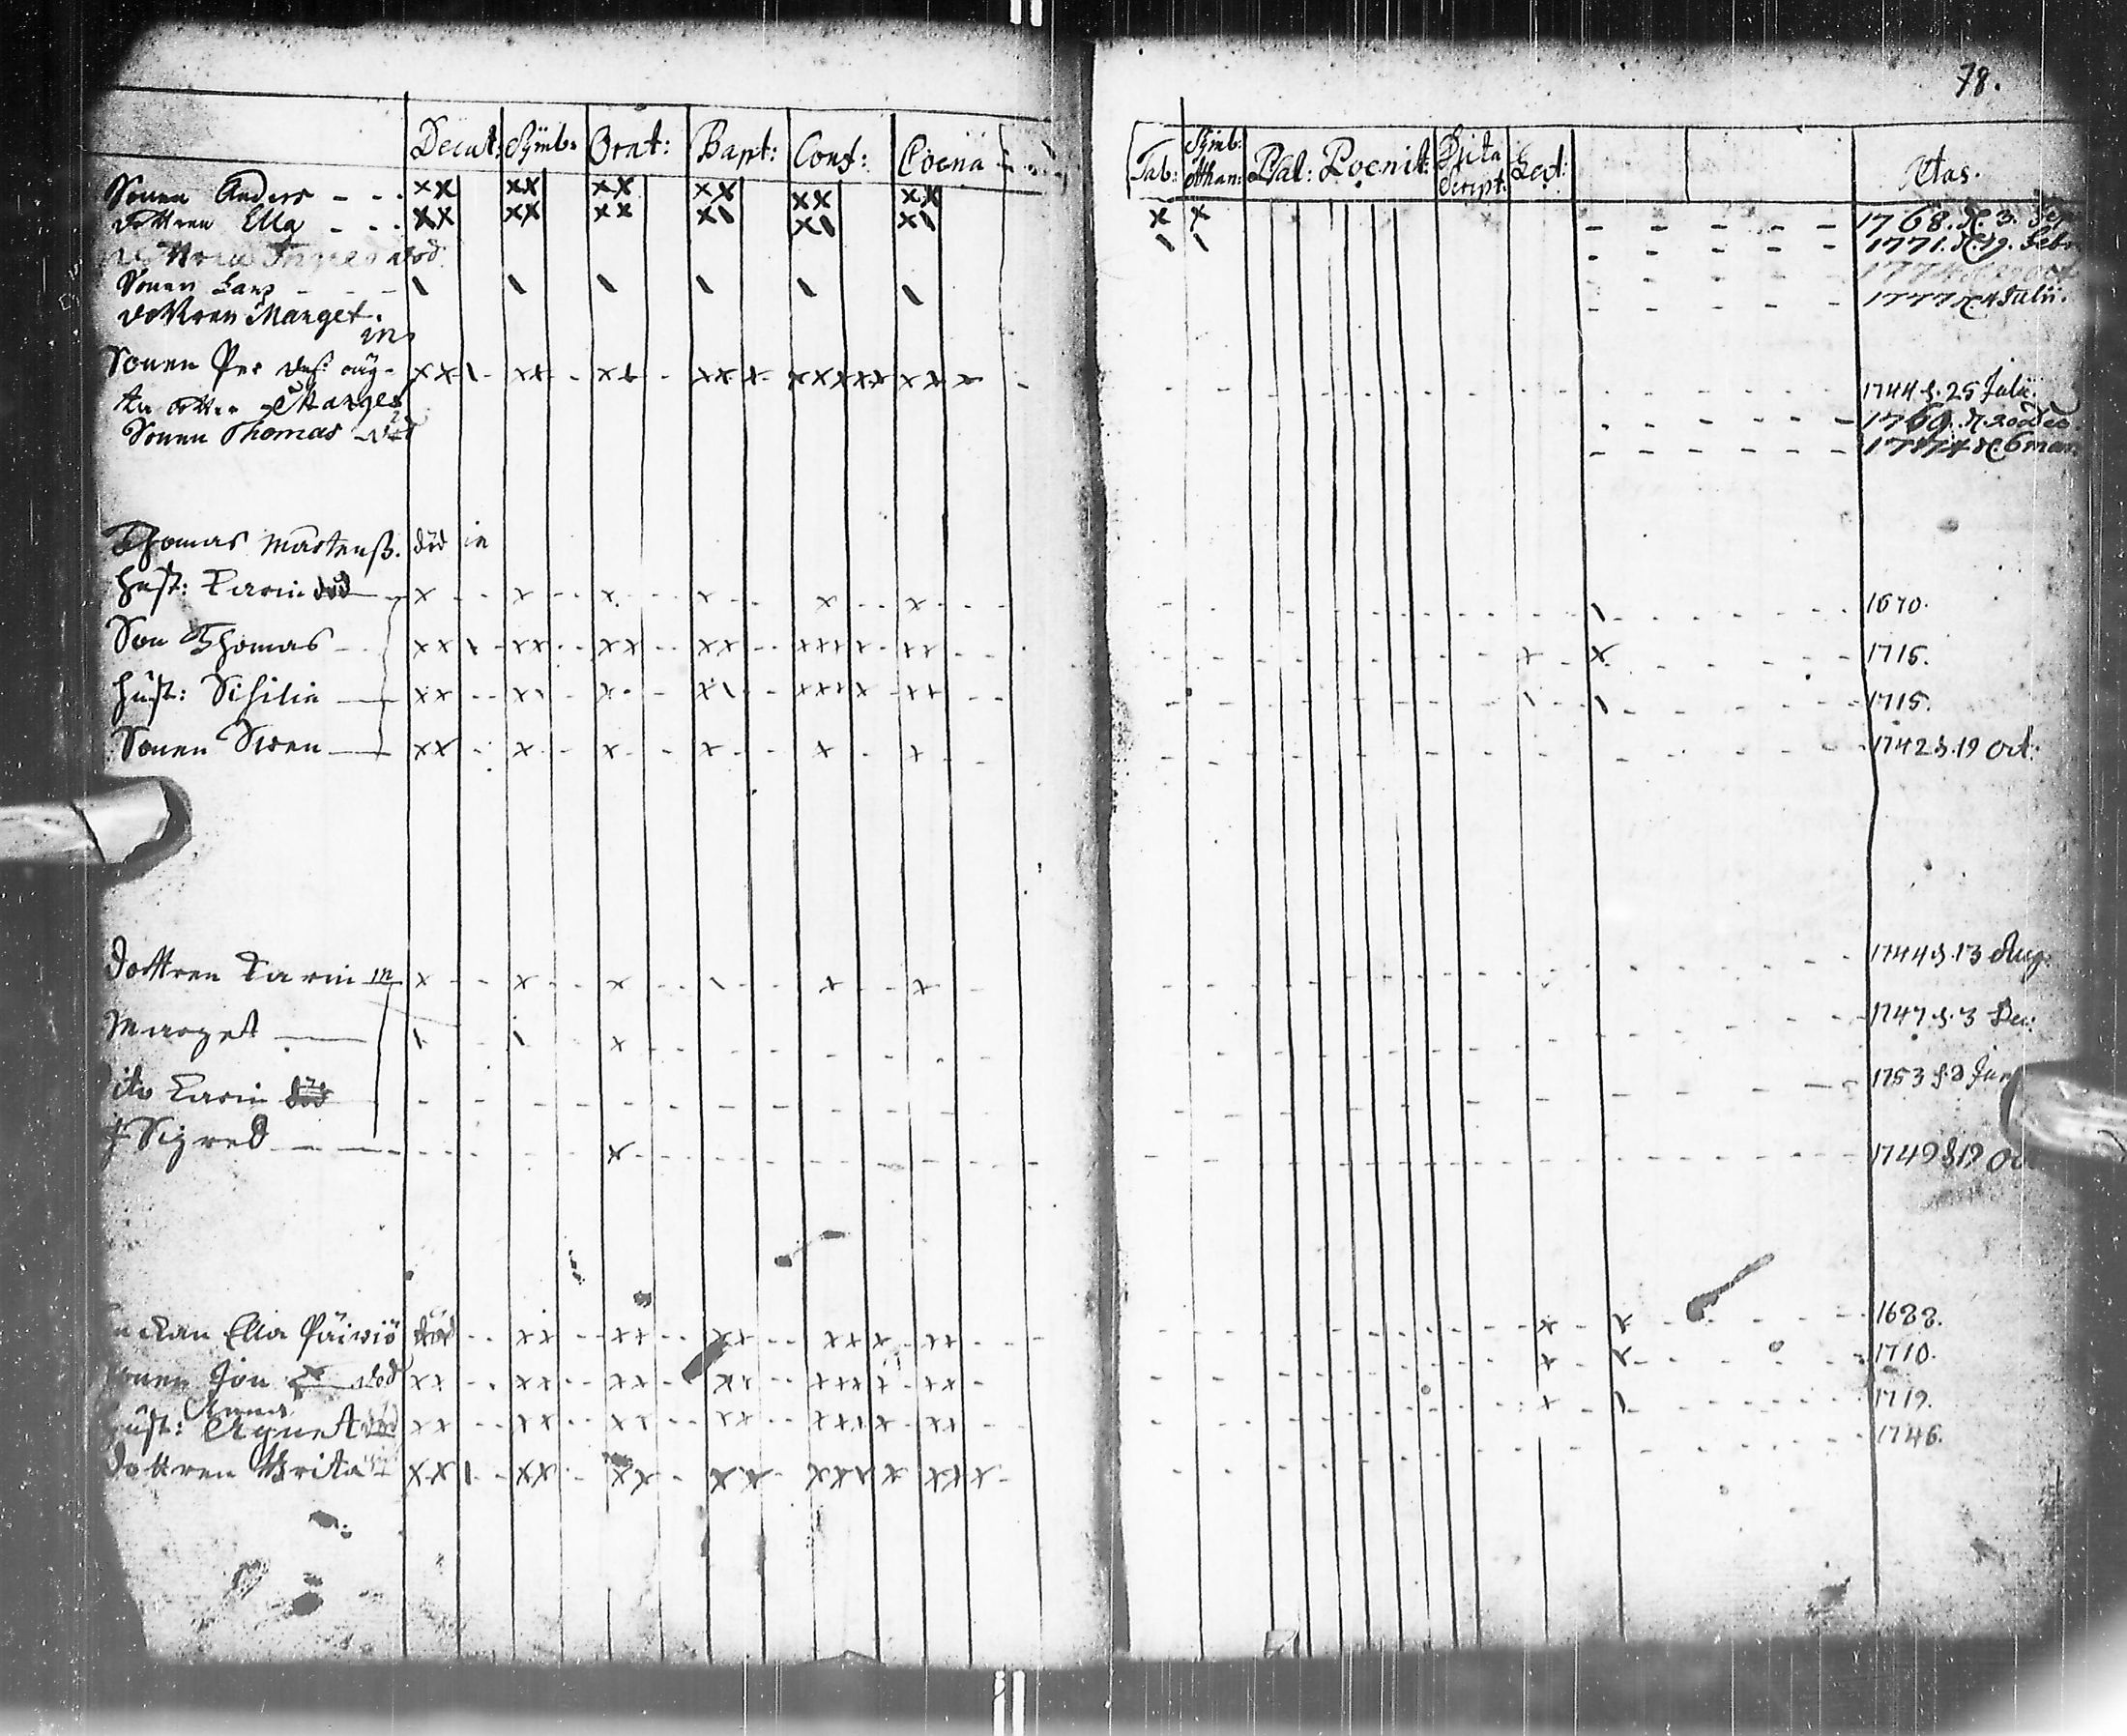 78.
Decal: Symb: Orat: Bapt: Conf: Coena Tab: Symb: Athan: Psal: Poenit: Dicta Script: Lect: Ætas.
Sonen Anders xx xx xx xx xx xx x x 1768. d. 3. Sep
dottren Ella xx xx xx x\ x\ x\ \ \ 1771. d. 19. Febr
död
Sonen Lars \ \ \ \ \ \ 1777 d. 4 Julii.
dottren Marget.
Sonen Per xx\ xx 1744 d. 25 Julii.
dotter Marget 1769. d. 20 Dec.
Sonen Thomas död 1774 d. 6 mar
Thomas Mårtenss. död
hust: Karin död x x x x x x \ 1670.
Son Thomas xx x xx xx xx xxxx x xx x x 1715.
hust: Sisilia xx x\ x x\ xxxx x xx \ \ 1715.
Sonen Swen xx x x x x x 1742 d. 19 Oct:
dottren Karin m x x x \ x x 1744 d. 13 Aug:
Marget \ \ x 1747 d. 3 Dec:
dito Karin död 1753 d. 8 Jun
Sigred x 1749 d 19 Oc
Enckan Ella Päiviö död xx xx xx xxx xx x x 1688.
Sonen Jon död xx xx xx xx xxx x xx x x 1710.
Anna
hust: Agnet död xx xx xx xx xxxx x xx x \ 1719.
dottren Brita xx \ xx xx xx xxxx x xx x 1746.